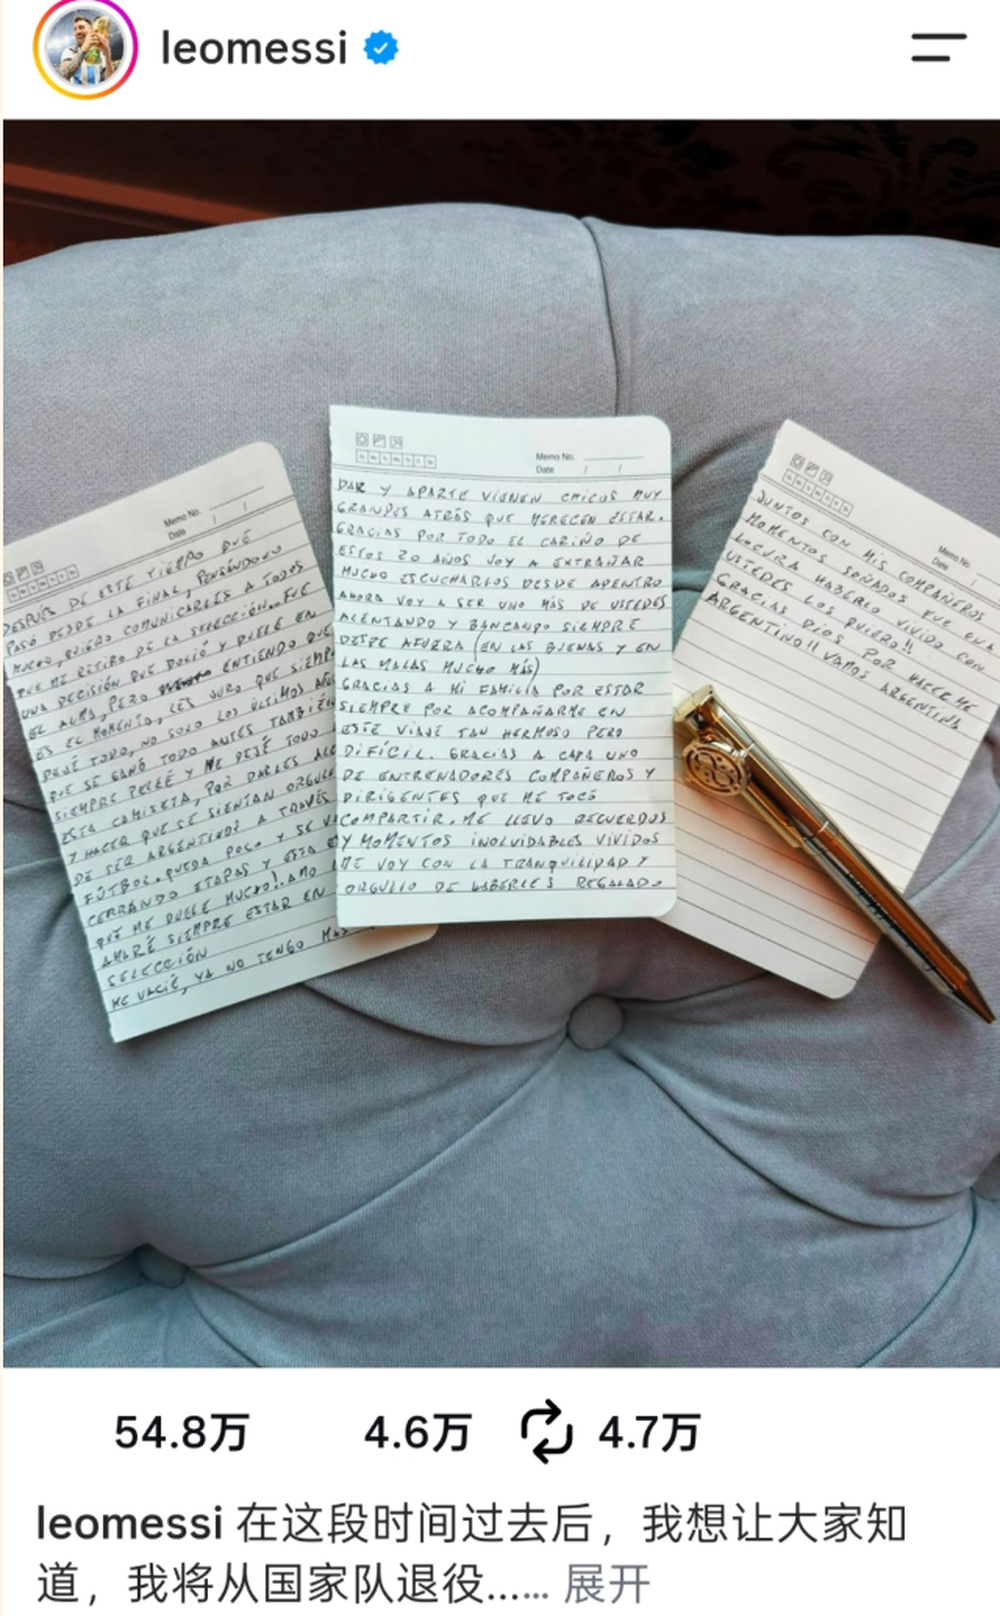 leomessi
Memo No.
Date / /
DESPUÉS DE ESTE TIEMPO QUE
PASÓ DESDE LA FINAL, PENSÁNDOLO
MUCHO, QUIERO COMUNICARLES A TODOS
QUE ME RETIRO DE LA SELECCIÓN. FUE
UNA DECISIÓN QUE DOLIÓ Y DUELE EN
EL ALMA, PERO ENTIENDO QUE
ES EL MOMENTO, LES JURO QUE SIEMP
DEJÉ TODO, NO SOLO LOS ÚLTIMOS AÑO
QUE SE GANÓ TODO ANTES TAMBIÉN
SIEMPRE PELEÉ Y ME DEJÉ TODO
ESTA CAMISETA, POR DARLES ALE
Y HACER QUE SE SIENTAN ORGULL
DE SER ARGENTINOS A TRAVÉS
FÚTBOL. QUEDA POCO Y SE VA
CERRANDO ETAPAS Y ESTA E
QUE ME DUELE MUCHO!. AMO
AMARÉ SIEMPRE ESTAR EN
SELECCIÓN
ME VACIÉ, YA NO TENGO MÁS
Memo No.
Date / /
DAR Y APARTE VIENEN CHICOS MUY
GRANDES ATRÁS QUE MERECEN ESTAR.
GRACIAS POR TODO EL CARIÑO DE
ESTOS 20 AÑOS VOY A EXTRAÑAR
MUCHO ESCUCHARLOS DESDE ADENTRO
AHORA VOY A SER UNO MÁS DE USTEDES
ALENTANDO Y BANCANDO SIEMPRE
DESDE AFUERA (EN LAS BUENAS Y EN
LAS MALAS MUCHO MÁS)
GRACIAS A MI FAMILIA POR ESTAR
SIEMPRE POR ACOMPAÑARME EN
ESTE VIAJE TAN HERMOSO PERO
DIFÍCIL. GRACIAS A CADA UNO
DE ENTRENADORES COMPAÑEROS Y
DIRIGENTES QUE ME TOCÓ
COMPARTIR. ME LLEVO RECUERDOS
Y MOMENTOS INOLVIDABLES VIVIDOS
ME VOY CON LA TRANQUILIDAD Y
ORGULLO DE HABERLES REGALADO
Memo No.
Date /
JUNTOS CON MIS COMPAÑEROS
MOMENTOS SOÑADOS FUE UNA
LOCURA HABERLO VIVIDO CON
USTEDES LOS QUIERO!!
GRACIAS DIOS POR HACERME
ARGENTINO!! VAMOS ARGENTINA
54.8万 4.6万 4.7万
leomessi 在这段时间过去后，我想让大家知
道，我将从国家队退役...... 展开